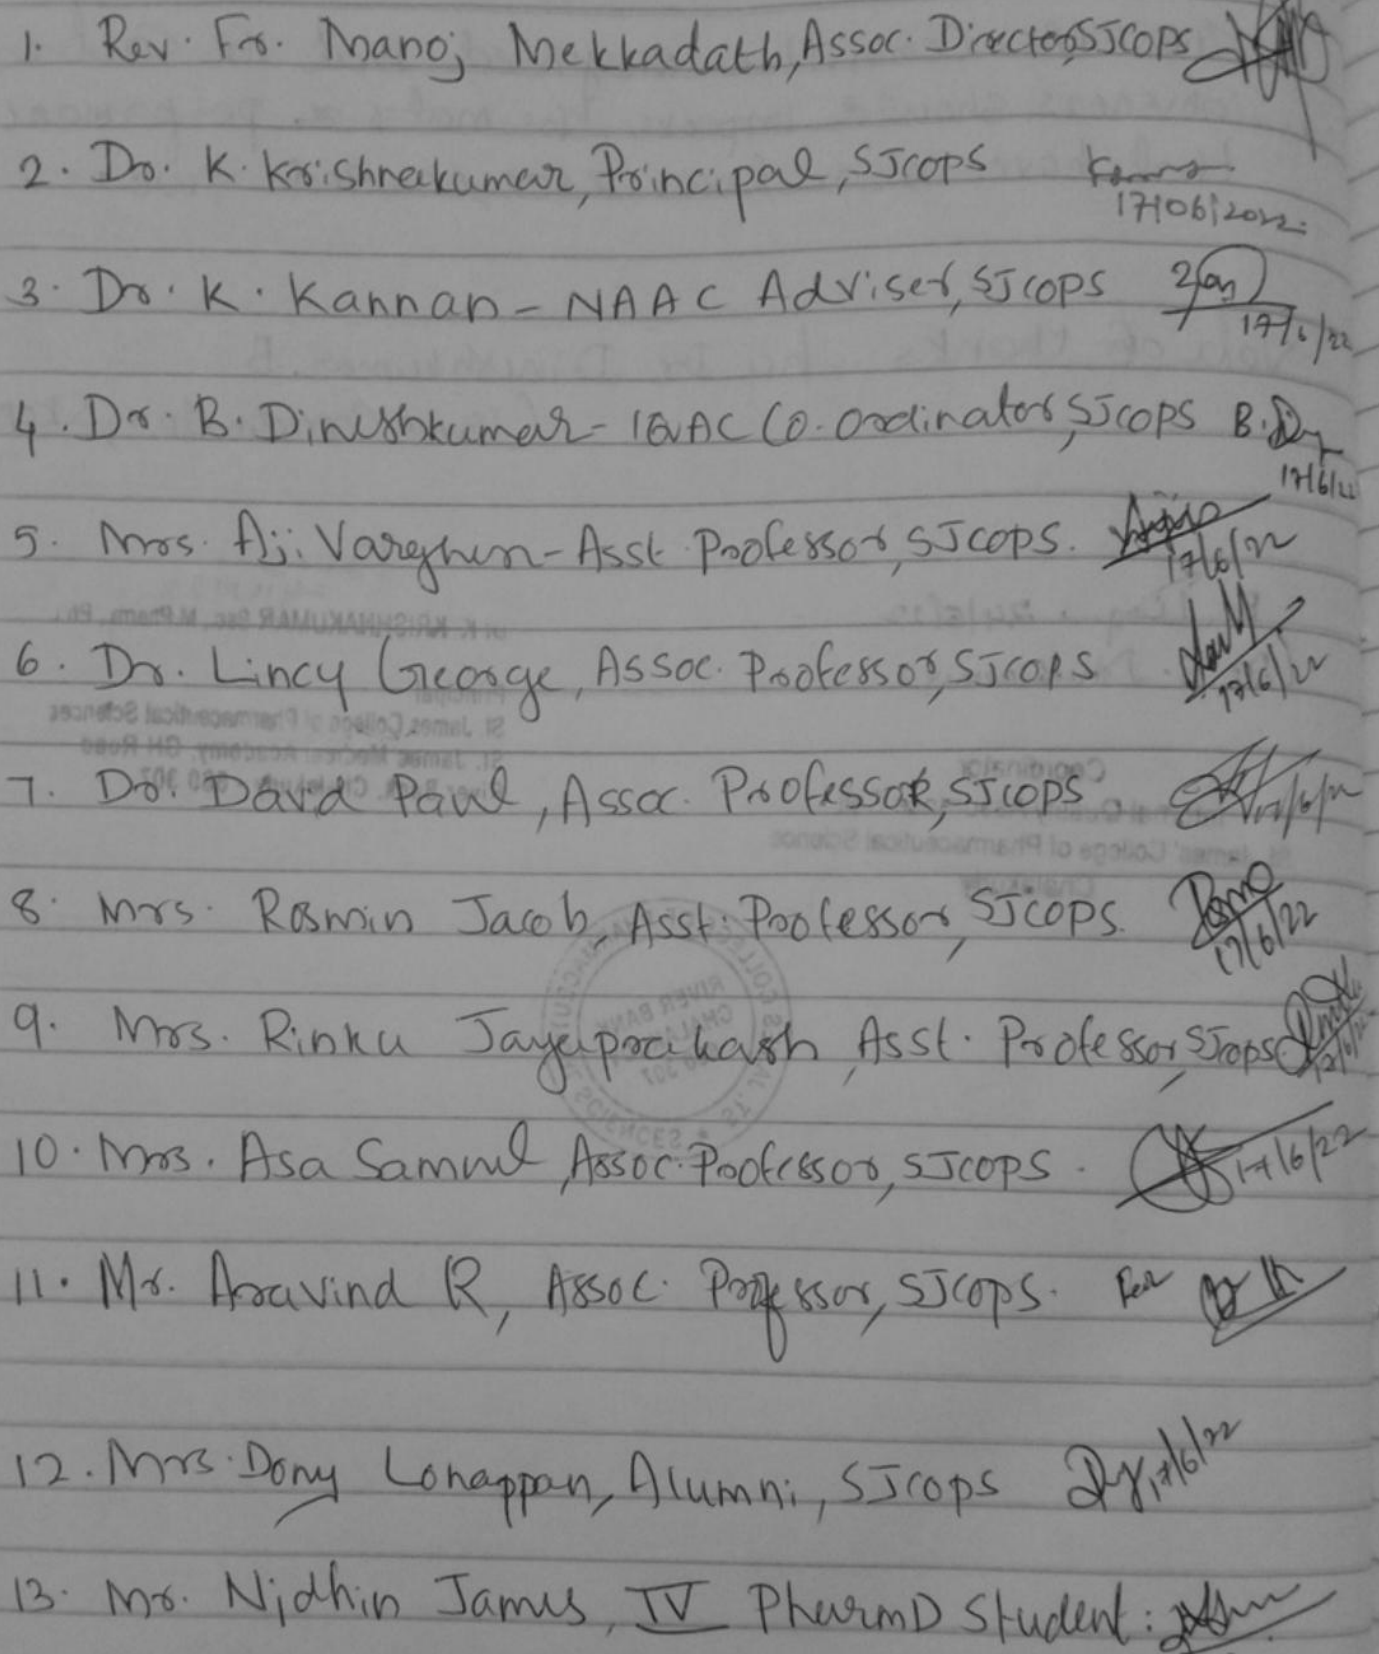 1. Rev. Fr. Manoj Mekkadath, Assoc. Director, SJCOPS
2. Dr. K. Krishnakumar, Principal, SJCOPS
17/06/2022
3. Dr. K. Kannan - NAAC Adviser, SJCOPS
17/6/22
4. Dr. B. Dineshkumar - IQAC Co-ordinator, SJCOPS B.
17/6/22
5. Mrs. Aji Varghese - Asst. Professor, SJCOPS.
17/6/22
6. Dr. Lincy George, Assoc. Professor, SJCOPS
17/6/22
7. Dr. David Paul, Assoc. Professor, SJCOPS 17/6/22
8. Mrs. Rosmin Jacob, Asst. Professor, SJCOPS.
17/6/22
9. Mrs. Rinku Jayaprakash, Asst. Professor, SJCOPS
17/6/22
10. Mrs. Asa Samuel, Assoc. Professor, SJCOPS. 17/6/22
11. Mr. Aravind R, Assoc. Professor, SJCOPS. For
12. Mrs. Dony Lonappan, Alumni, SJCOPS 17/6/22
13. Mr. Nidhin James, IV PharmD Student: